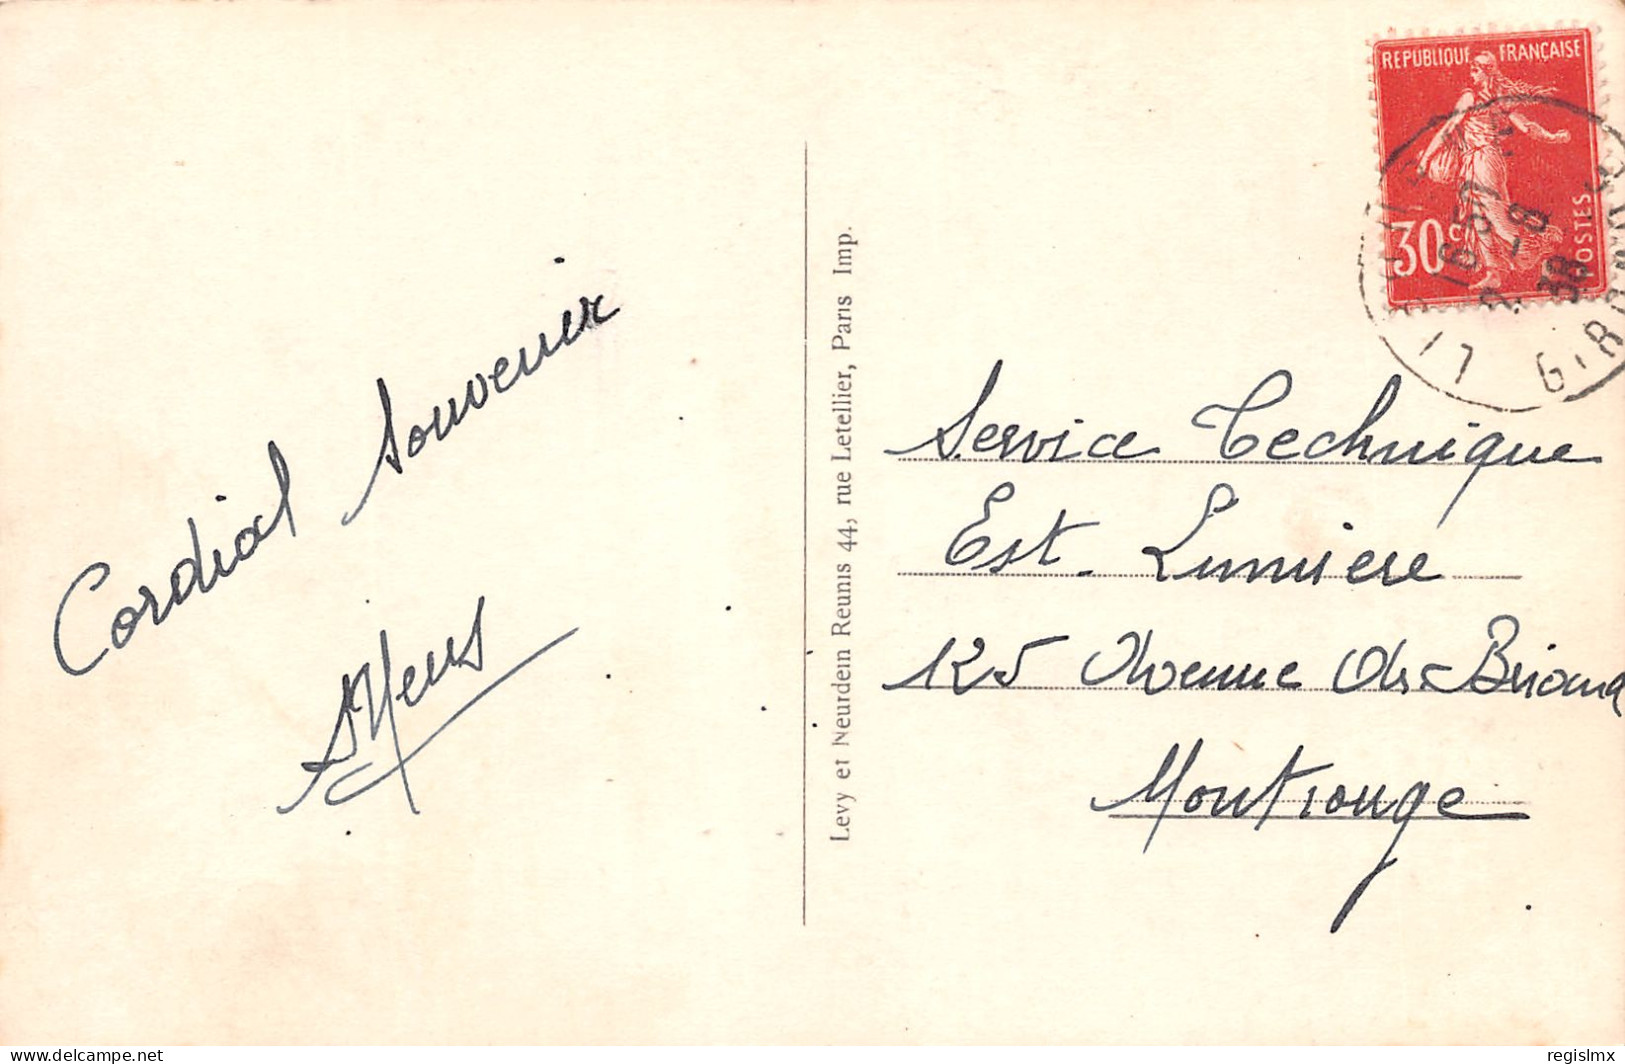 Cordial Souvenir
Levy et Neurdein Reunis 44, rue Letellier, Paris Imp.
REPUBLIQUE FRANÇAISE
30c
POSTES
1650
2-8
38
GIRONDE
Service Technique
Est. Lumiere
125 Avenue Ar. Briand
Montrouge
delcampe.net
regislmx